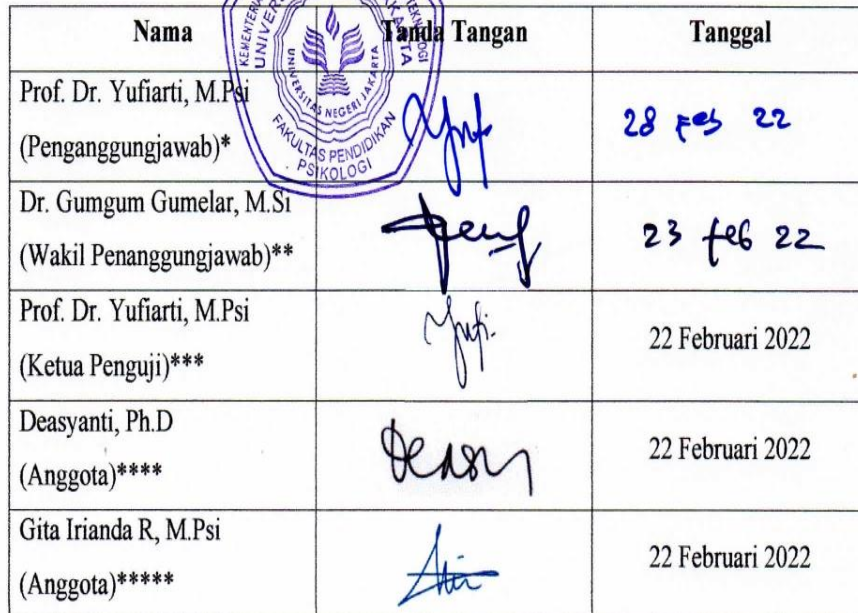 Nama Tanda Tangan Tanggal
Prof. Dr. Yufiarti, M.Psi
(Penganggungjawab)* 28 Feb 22
Dr. Gumgum Gumelar, M.Si
(Wakil Penanggungjawab)** 23 feb 22
Prof. Dr. Yufiarti, M.Psi
(Ketua Penguji)*** 22 Februari 2022
Deasyanti, Ph.D
(Anggota)**** 22 Februari 2022
Gita Irianda R, M.Psi
(Anggota)***** 22 Februari 2022
UNIVERSITAS NEGERI JAKARTA
FAKULTAS PENDIDIKAN
PSIKOLOGI